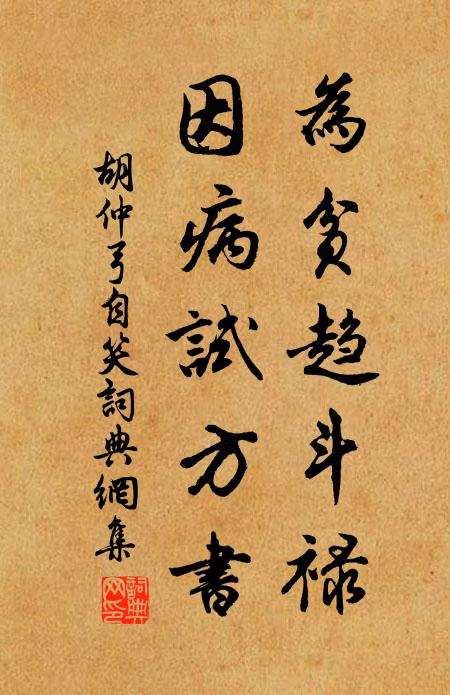 為貧趨斗祿
因病試方書
胡仲弓自笑詞典網集
詞典网印